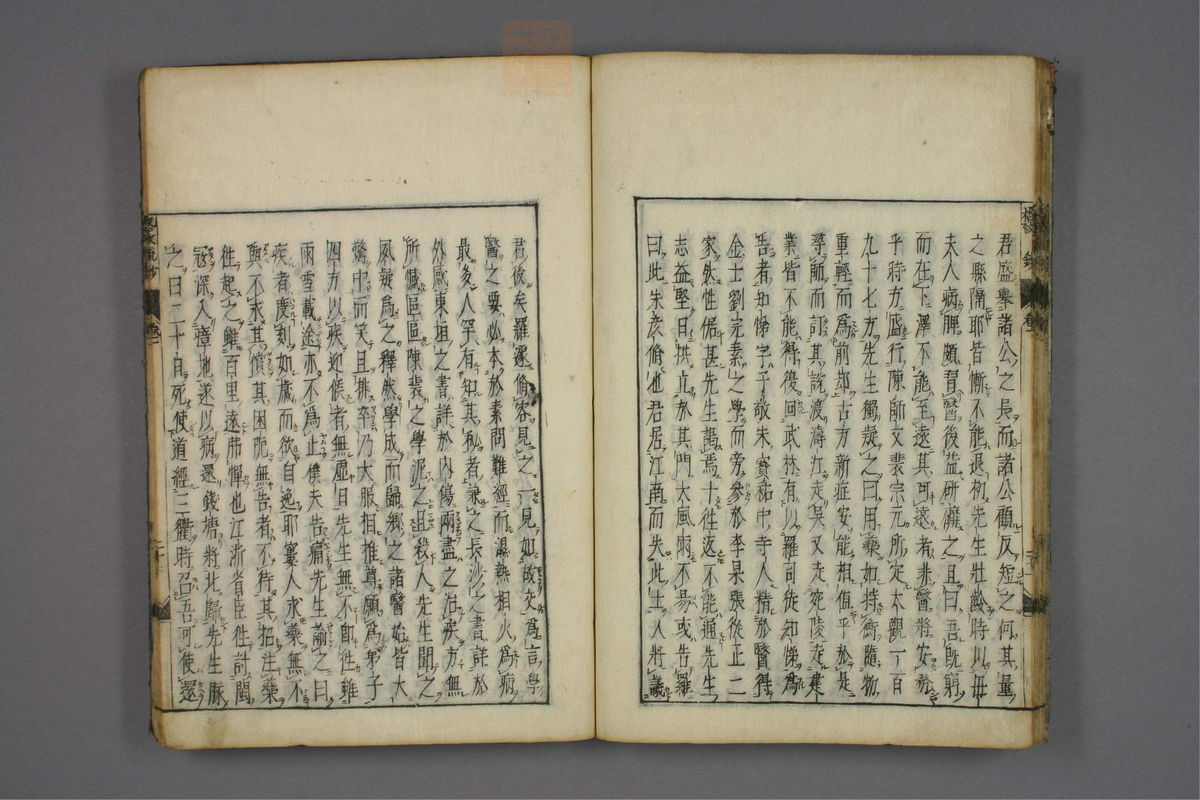 君盛舉諸公之長而諸公顧反短之何其量
之縣隔耶皆慚不能退初先生壯齡時以母
夫人病脾頗習醫後益研䃺之且曰吾旣窮
而在下澤不能至遠其可遠者非醫將安務
乎時方盛行陳師文裴宗元所定大觀一百
九十七方先生獨疑之曰用藥如持衡隨物
重輕而爲前却古方新症安能相值乎於是
尋師而訂其說渡濤江走吳又走宛陵走建
業皆不能得復回武林有以羅司徒知悌爲
告者知悌字子敬宋寳祐中寺人精於醫得
金士劉完素之學而旁參於李杲張從正二
家然性倨甚先生謁焉十往返不能通先生
志益堅日拱立於其門大風雨不易或告羅
曰此朱彦脩也君居江南而失此士人將議
君後矣羅遽脩容見之一見如故交爲言學
醫之要必本於素問難經而濕熱相火爲病
最多人罕有知其秘者兼之長沙之書詳於
外感東垣之書詳於内傷兩盡之治疾方無
所憾區區陳裴之學泥之且殺人先生聞之
夙疑爲之釋然學成而歸鄉之諸醫始皆大
驚中而笑且排卒乃大服相推尊願爲弟子
四方以疾迎候者無虚日先生無不即往雖
雨雪載途亦不爲止僕夫告痡先生諭之曰
疾者度刻如歲而欲自逸耶窶人求藥無不
與不求其償其困阨無告者不待其招注藥
往起之雖百里遠弗憚也江浙省臣往討閩
冦深入瘴地遂以病還錢塘將北歸先生脉
之曰二十日死使道經三衢時召吾可使還